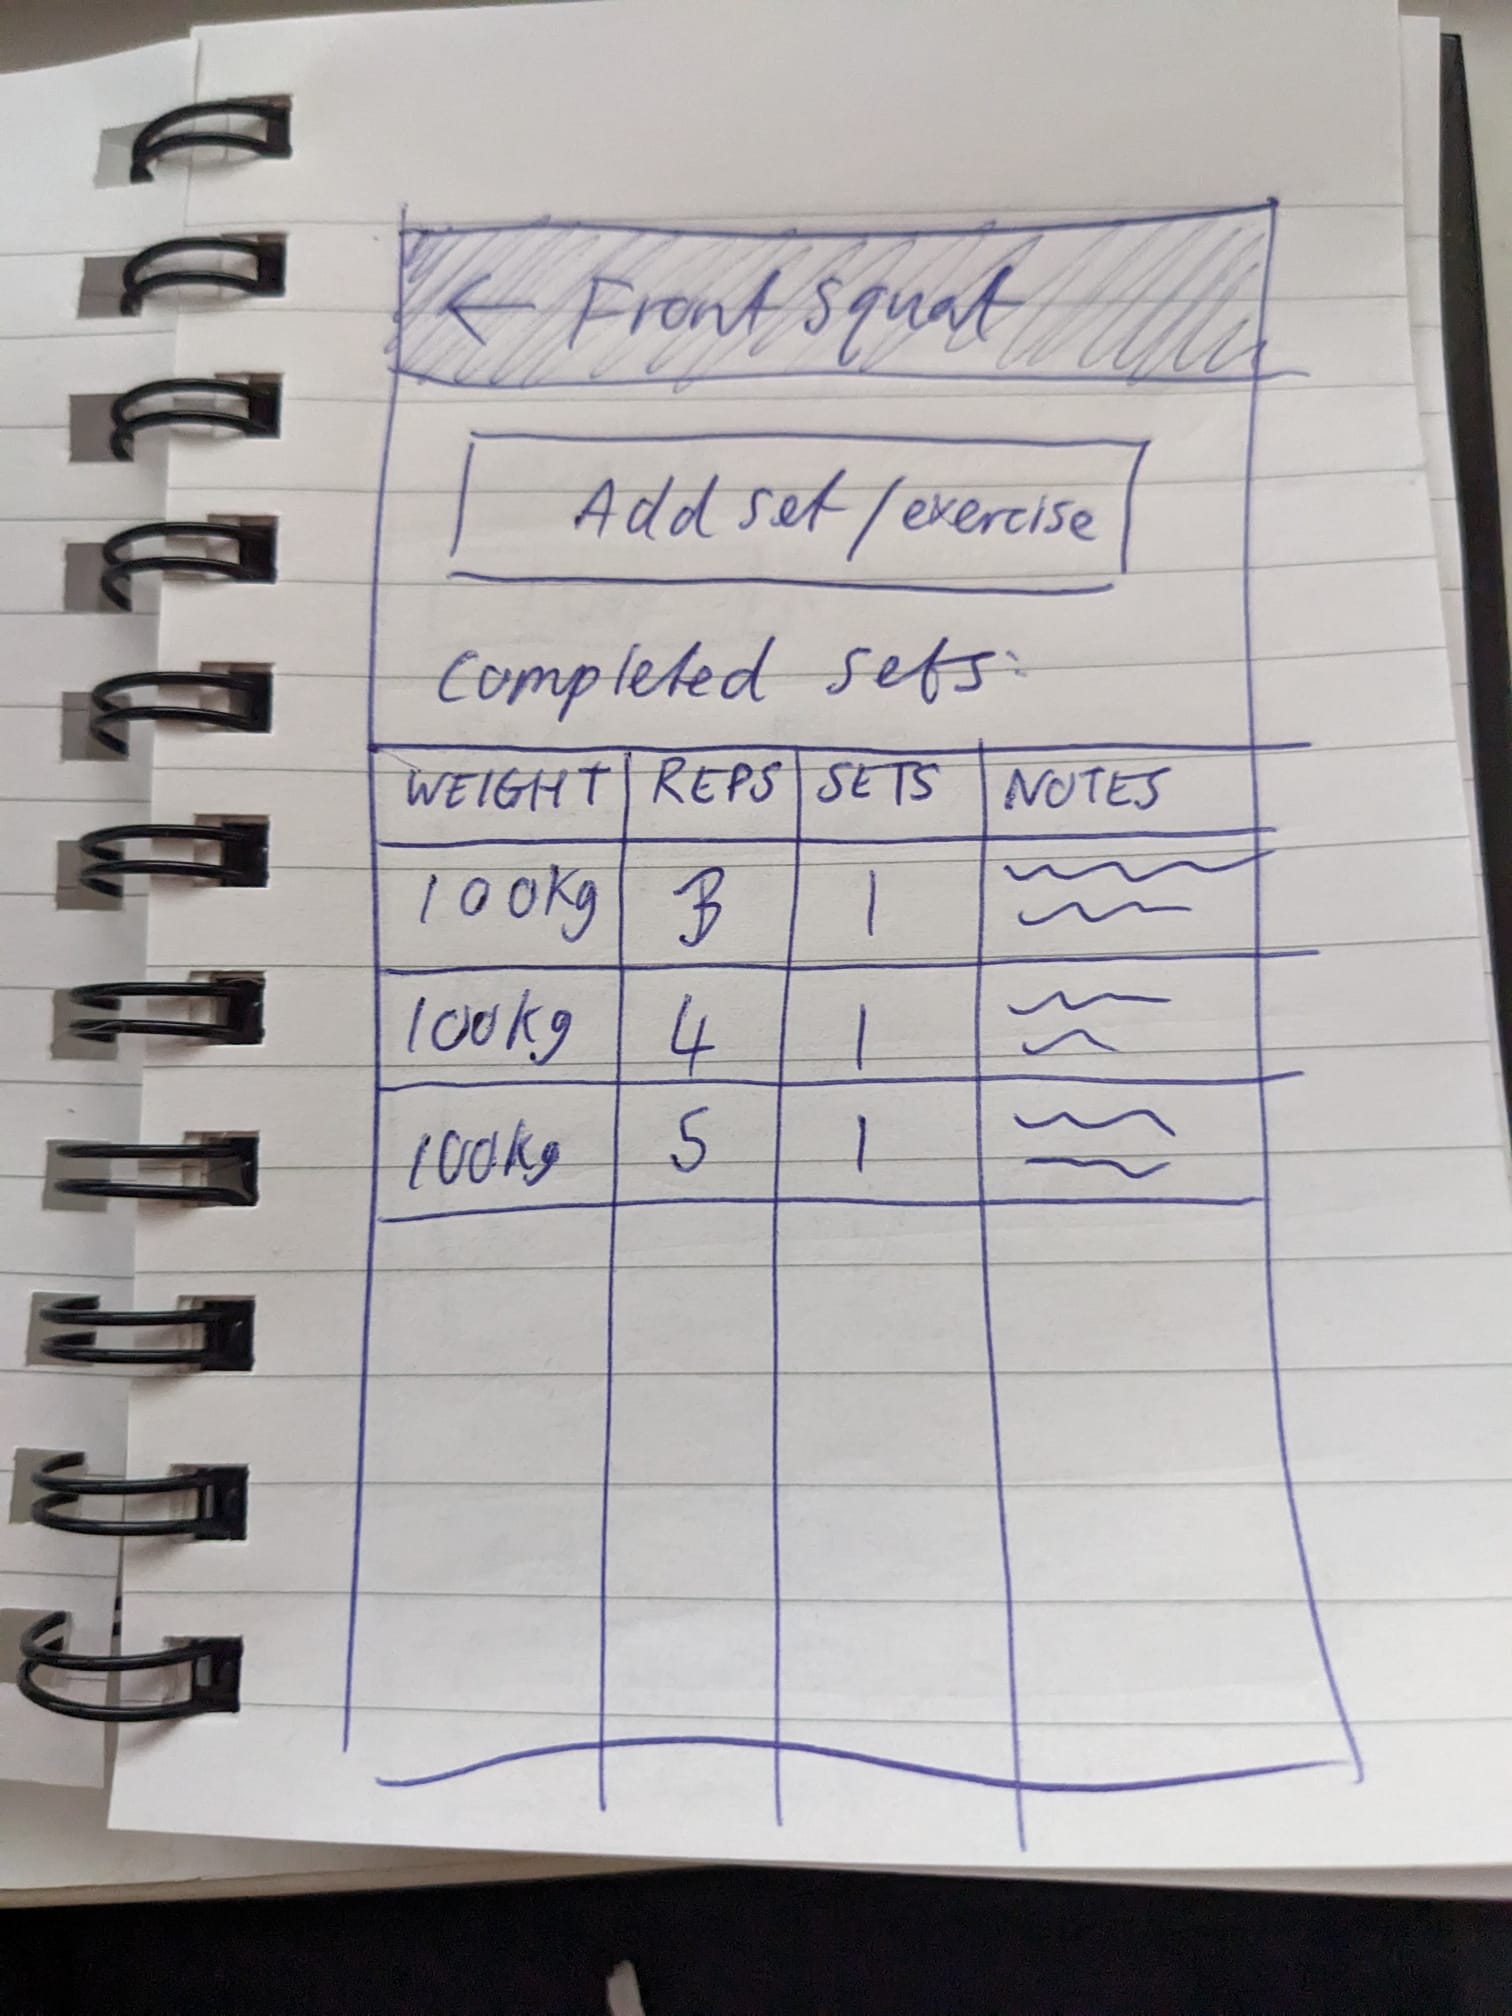 ← Front Squat
Add set/exercise
Completed sets:
WEIGHT REPS SETS NOTES
100kg 3 1
100kg 4 1
100kg 5 1